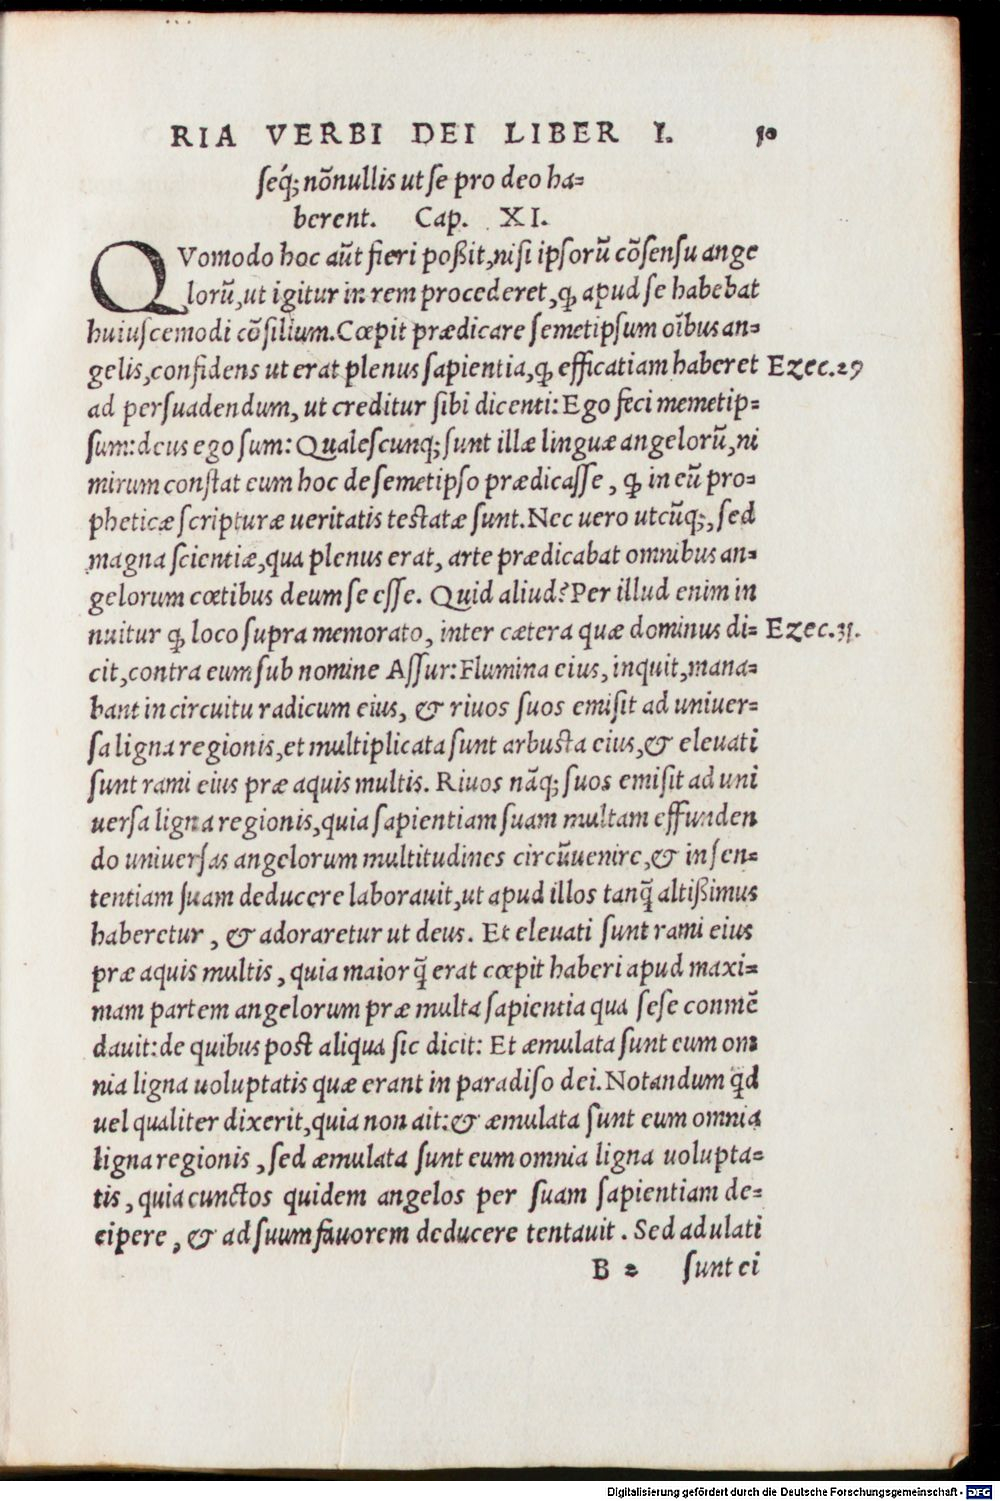 RIA VERBI DEI LIBER I. 10
seq́; nõnullis ut se pro deo ha=
berent. Cap. XI.
QVomodo hoc aũt fieri poßit, nisi ipsorũ cõsensu ange
lorũ, ut igitur in rem procederet, ꝙ apud se habebat
huiuscemodi cõsilium. Cœpit prædicare semetipsum oĩbus an=
gelis, confidens ut erat plenus sapientia, ꝙ efficatiam haberet Ezec.29
ad persuadendum, ut creditur sibi dicenti: Ego feci memetip=
sum: deus ego sum: Qualescunq; sunt illæ linguæ angelorũ, ni
mirum constat eum hoc de semetipso prædicasse, ꝙ in eũ pro=
pheticæ scripturæ ueritatis testatæ sunt. Nec uero utcũq;, sed
magna scientiæ, qua plenus erat, arte prædicabat omnibus an=
gelorum cœtibus deum se esse. Quid aliud? Per illud enim in
nuitur ꝙ loco supra memorato, inter cætera quæ dominus di= Ezec.31.
cit, contra eum sub nomine Assur: Flumina eius, inquit, mana=
bant in circuitu radicum eius, & riuos suos emisit ad uniuer=
sa ligna regionis, et multiplicata sunt arbusta eius, & eleuati
sunt rami eius præ aquis multis. Riuos nãq; suos emisit ad uni
uersa ligna regionis, quia sapientiam suam multam effunden
do uniuersas angelorum multitudines circũuenire, & in sen=
tentiam suam deducere laborauit, ut apud illos tanq̃ altißimus
haberetur, & adoraretur ut deus. Et eleuati sunt rami eius
præ aquis multis, quia maior q̃ erat cœpit haberi apud maxi=
mam partem angelorum præ multa sapientia qua sese conmẽ
dauit: de quibus post aliqua sic dicit: Et æmulata sunt eum om
nia ligna uoluptatis quæ erant in paradiso dei. Notandum q̃d
uel qualiter dixerit, quia non ait: & æmulata sunt eum omnia
ligna regionis, sed æmulata sunt eum omnia ligna uolupta=
tis, quia cunctos quidem angelos per suam sapientiam de=
cipere, & ad suum fauorem deducere tentauit. Sed adulati
B 2 sunt ei
Digitalisierung gefördert durch die Deutsche Forschungsgemeinschaft - DFG